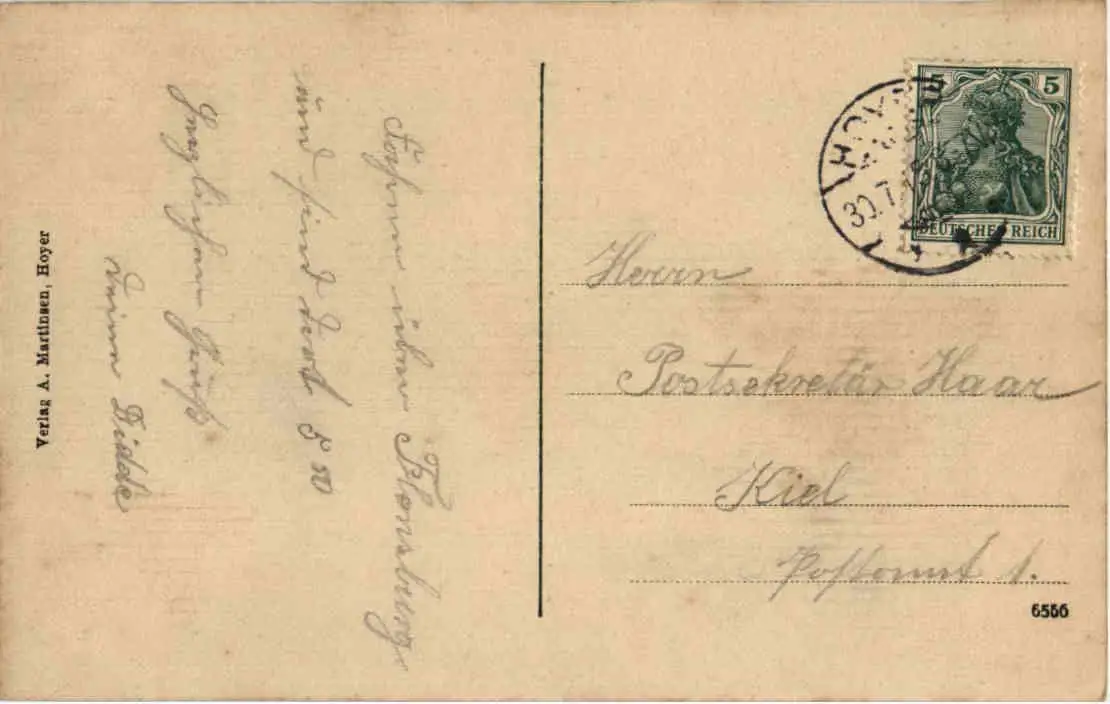 Fahren über Flensburg
und sind dort 5 50
Herzlichen Gruß
Deine Didde
Verlag A. Martinsen, Hoyer
HOYER
30.7.
5 5
DEUTSCHES REICH
Herrn
Postsekretär Haar
Kiel
Postamt 1.
6556